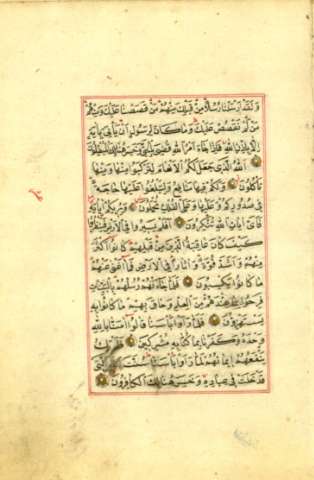 وَلَقَدْ اَرْسَلْنَا رُسُلًا مِنْ قَبْلِكَ مِنْهُمْ مَنْ قَصَصْنَا عَلَيْكَ وَمِنْهُمْ
مَنْ لَمْ نَقْصُصْ عَلَيْكَ وَمَا كَانَ لِرَسُولٍ اَنْ يَأْتِيَ بِاٰيَةٍ
اِلَّا بِاِذْنِ اللّٰهِ فَاِذَا جَاءَ اَمْرُ اللّٰهِ قُضِيَ بِالْحَقِّ وَخَسِرَ هُنَالِكَ الْمُبْطِلُونَ
اَللّٰهُ الَّذِي جَعَلَ لَكُمُ الْاَنْعَامَ لِتَرْكَبُوا مِنْهَا وَمِنْهَا
تَأْكُلُونَ وَلَكُمْ فِيهَا مَنَافِعُ وَلِتَبْلُغُوا عَلَيْهَا حَاجَةً
فِي صُدُورِكُمْ وَعَلَيْهَا وَعَلَى الْفُلْكِ تُحْمَلُونَ وَيُرِيكُمْ اٰيَاتِهِ
فَاَيَّ اٰيَاتِ اللّٰهِ تُنْكِرُونَ اَفَلَمْ يَسِيرُوا فِي الْاَرْضِ فَيَنْظُرُوا
كَيْفَ كَانَ عَاقِبَةُ الَّذِينَ مِنْ قَبْلِهِمْ كَانُوا اَكْثَرَ
مِنْهُمْ وَاَشَدَّ قُوَّةً وَاٰثَارًا فِي الْاَرْضِ فَمَا اَغْنٰى عَنْهُمْ
مَا كَانُوا يَكْسِبُونَ فَلَمَّا جَاءَتْهُمْ رُسُلُهُمْ بِالْبَيِّنَاتِ
فَرِحُوا بِمَا عِنْدَهُمْ مِنَ الْعِلْمِ وَحَاقَ بِهِمْ مَا كَانُوا بِهِ
يَسْتَهْزِؤُنَ فَلَمَّا رَاَوْا بَأْسَنَا قَالُوا اٰمَنَّا بِاللّٰهِ
وَحْدَهُ وَكَفَرْنَا بِمَا كُنَّا بِهِ مُشْرِكِينَ فَلَمْ يَكُ
يَنْفَعُهُمْ اِيمَانُهُمْ لَمَّا رَاَوْا بَأْسَنَا سُنَّتَ اللّٰهِ الَّتِي
قَدْ خَلَتْ فِي عِبَادِهِ وَخَسِرَ هُنَالِكَ الْكَافِرُونَ